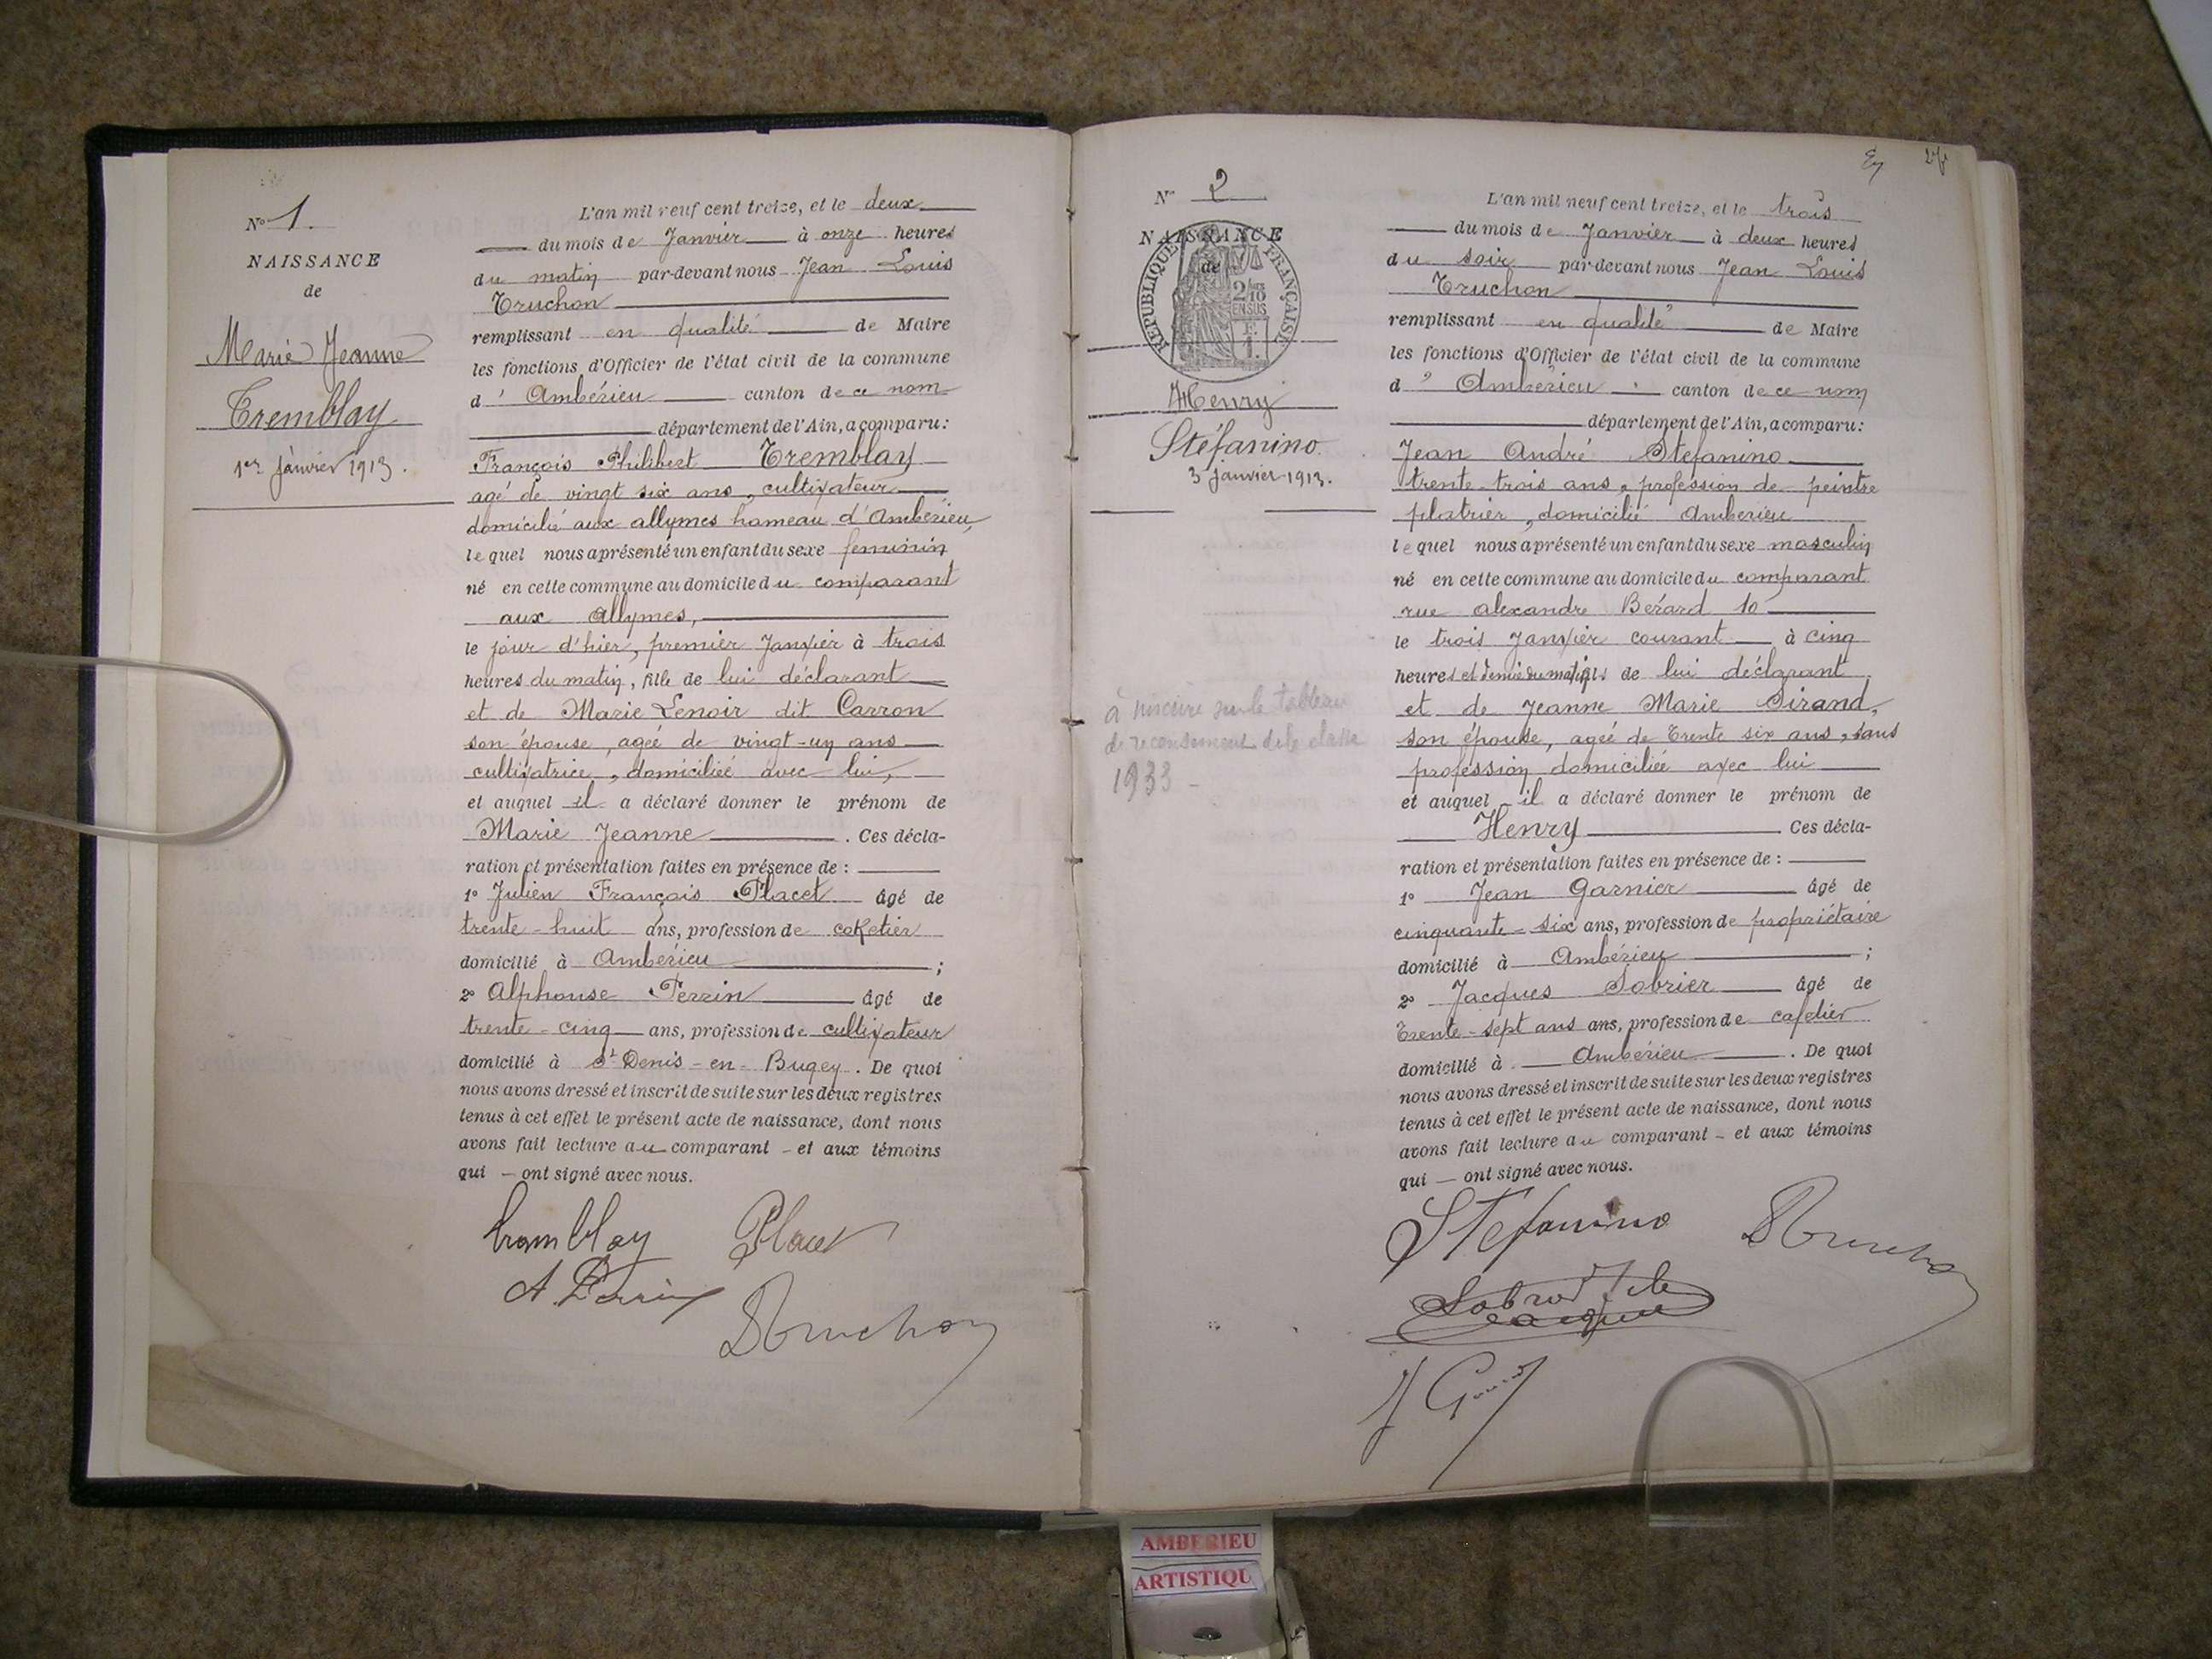 N° 1.
NAISSANCE
de
Marie Jeanne
Tremblay
1er janvier 1913.
L'an mil neuf cent treize, et le deux
du mois de Janvier à onze heures
du matin par-devant nous Jean Louis
Truchon
remplissant en qualité de Maire
les fonctions d'Officier de l'état civil de la commune
d' Ambérieu canton de ce nom
département de l'Ain, a comparu:
François Philibert Tremblay
agé de vingt six ans, cultivateur
domicilié aux allymes hameau d'Ambérieu,
lequel nous a présenté un enfant du sexe feminin
né en cette commune au domicile du comparant
aux allymes,
le jour d'hier, premier Janvier à trois
heures du matin, fille de lui déclarant
et de Marie Lenoir dit Carron
son épouse, agée de vingt-un ans
cultivatrice, domiciliée avec lui,
et auquel il a déclaré donner le prénom de
Marie Jeanne. Ces décla-
ration et présentation faites en présence de :
1° Julien François Placet âgé de
trente-huit ans, profession de coketier
domicilié à Ambérieu ;
2° Alphonse Perrin âgé de
trente-cinq ans, profession de cultivateur
domicilié à St Denis-en-Bugey. De quoi
nous avons dressé et inscrit de suite sur les deux registres
tenus à cet effet le présent acte de naissance, dont nous
avons fait lecture au comparant - et aux témoins
qui - ont signé avec nous.
Tremblay Placet
A. Perrin
Truchon
N° 2
NAISSANCE
de
RÉPUBLIQUE FRANÇAISE
2/10
EN SUS
F.
1.
Henry
Stéfanino.
3 Janvier 1913.
à inscrire sur le tableau
de recensement de la classe
1933 -
L'an mil neuf cent treize, et le trois
du mois de Janvier à deux heures
du soir par-devant nous Jean Louis
Truchon
remplissant en qualité de Maire
les fonctions d'Officier de l'état civil de la commune
d' Ambérieu canton de ce nom
département de l'Ain, a comparu:
Jean André Stefanino
trente-trois ans, profession de peintre
platrier, domicilié Amberieu
lequel nous a présenté un enfant du sexe masculin
né en cette commune au domicile du comparant
rue alexandre Bérard 10
le trois Janvier courant à cinq
heures et demie du matin, fils de lui déclarant
et de Jeanne Marie Sirand,
son épouse, agée de Trente six ans, sans
profession domiciliée avec lui
et auquel il a déclaré donner le prénom de
Henry Ces décla-
ration et présentation faites en présence de :
1° Jean Garnier âgé de
cinquante-six ans, profession de propriétaire
domicilié à Ambérieu ;
2° Jacques Sobrier âgé de
Trente-sept ans ans, profession de cafetier
domicilié à Ambérieu. De quoi
nous avons dressé et inscrit de suite sur les deux registres
tenus à cet effet le présent acte de naissance, dont nous
avons fait lecture au comparant - et aux témoins
qui - ont signé avec nous.
Stefanino Truchon
Jacques
AMBERIEU
ARTISTIQU